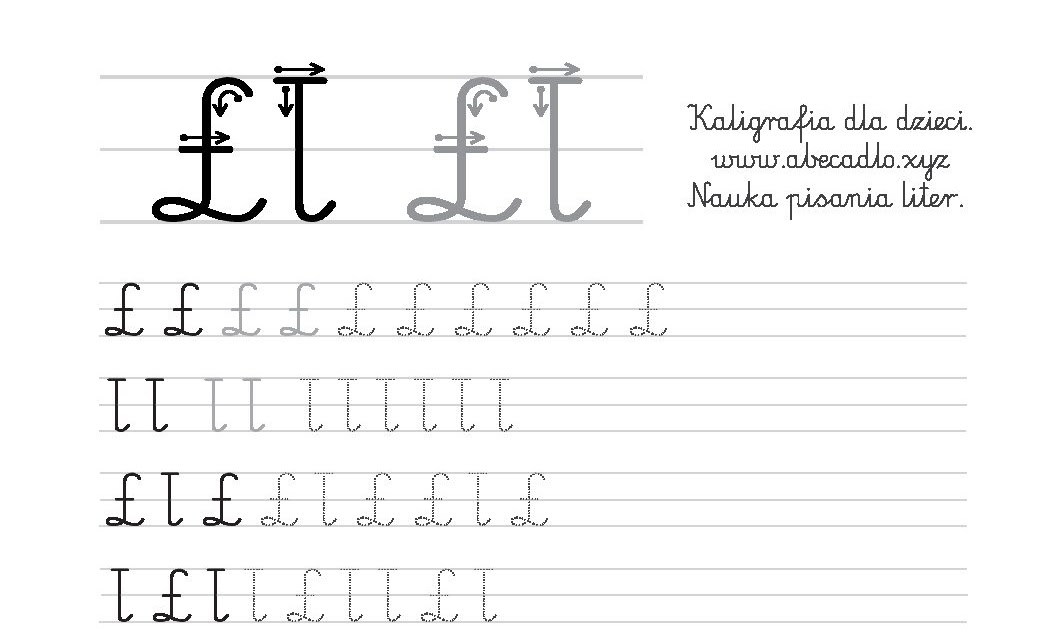 Łł Łł
Kaligrafia dla dzieci.
www.abecadlo.xyz
Nauka pisania liter.
Ł Ł Ł Ł Ł Ł Ł Ł Ł Ł
ł ł ł ł ł ł ł ł ł ł
Ł ł Ł Ł ł Ł Ł ł Ł
ł Ł ł ł Ł ł ł Ł ł